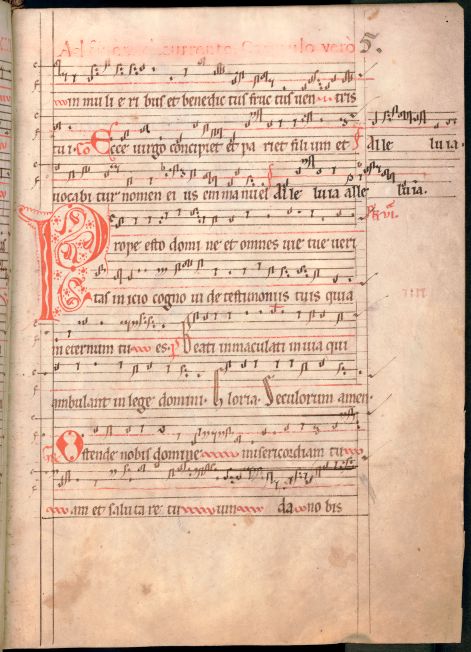 in mu li e ri bus et benedic tus fruc tus uen tris
tui. co Ecce uirgo concipiet et pa riet fili um et Alle lu ia.
uocabi tur nomen ei us em ma nu el Alle lu ia alle lu ia.
Prope esto domi ne et omnes uie tue ueri
tas inicio cogno ui de testimoniis tuis quia
in eternum tu es. p Beati inmaculati in uia qui
ambulant in lege domini. Gloria. Seculorum amen
Ostende nobis domine misericordiam tu
am et saluta re tu um da no bis